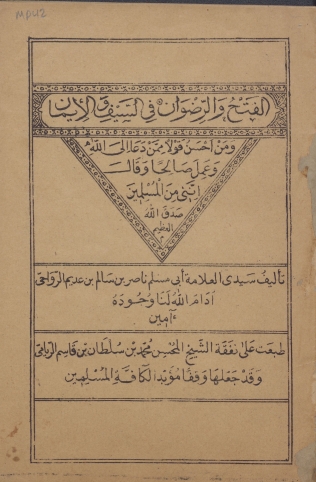 MP112
الفتح والرضوان في السيف والإيمان
ومن أحسن قولا ممن دعا إلى الله
وعمل صالحا وقال
إنني من المسلمين
صدق الله
العظيم
تأليف سيدي العلامة أبي مسلم ناصر بن سالم بن عديم الرواحي
أدام الله لنا وجوده
آمين
طبعت على نفقة الشيخ المحسن محمد بن سلطان بن قاسم الريامي
وقد جعلها وقفا مؤبدا لكافة المسلمين